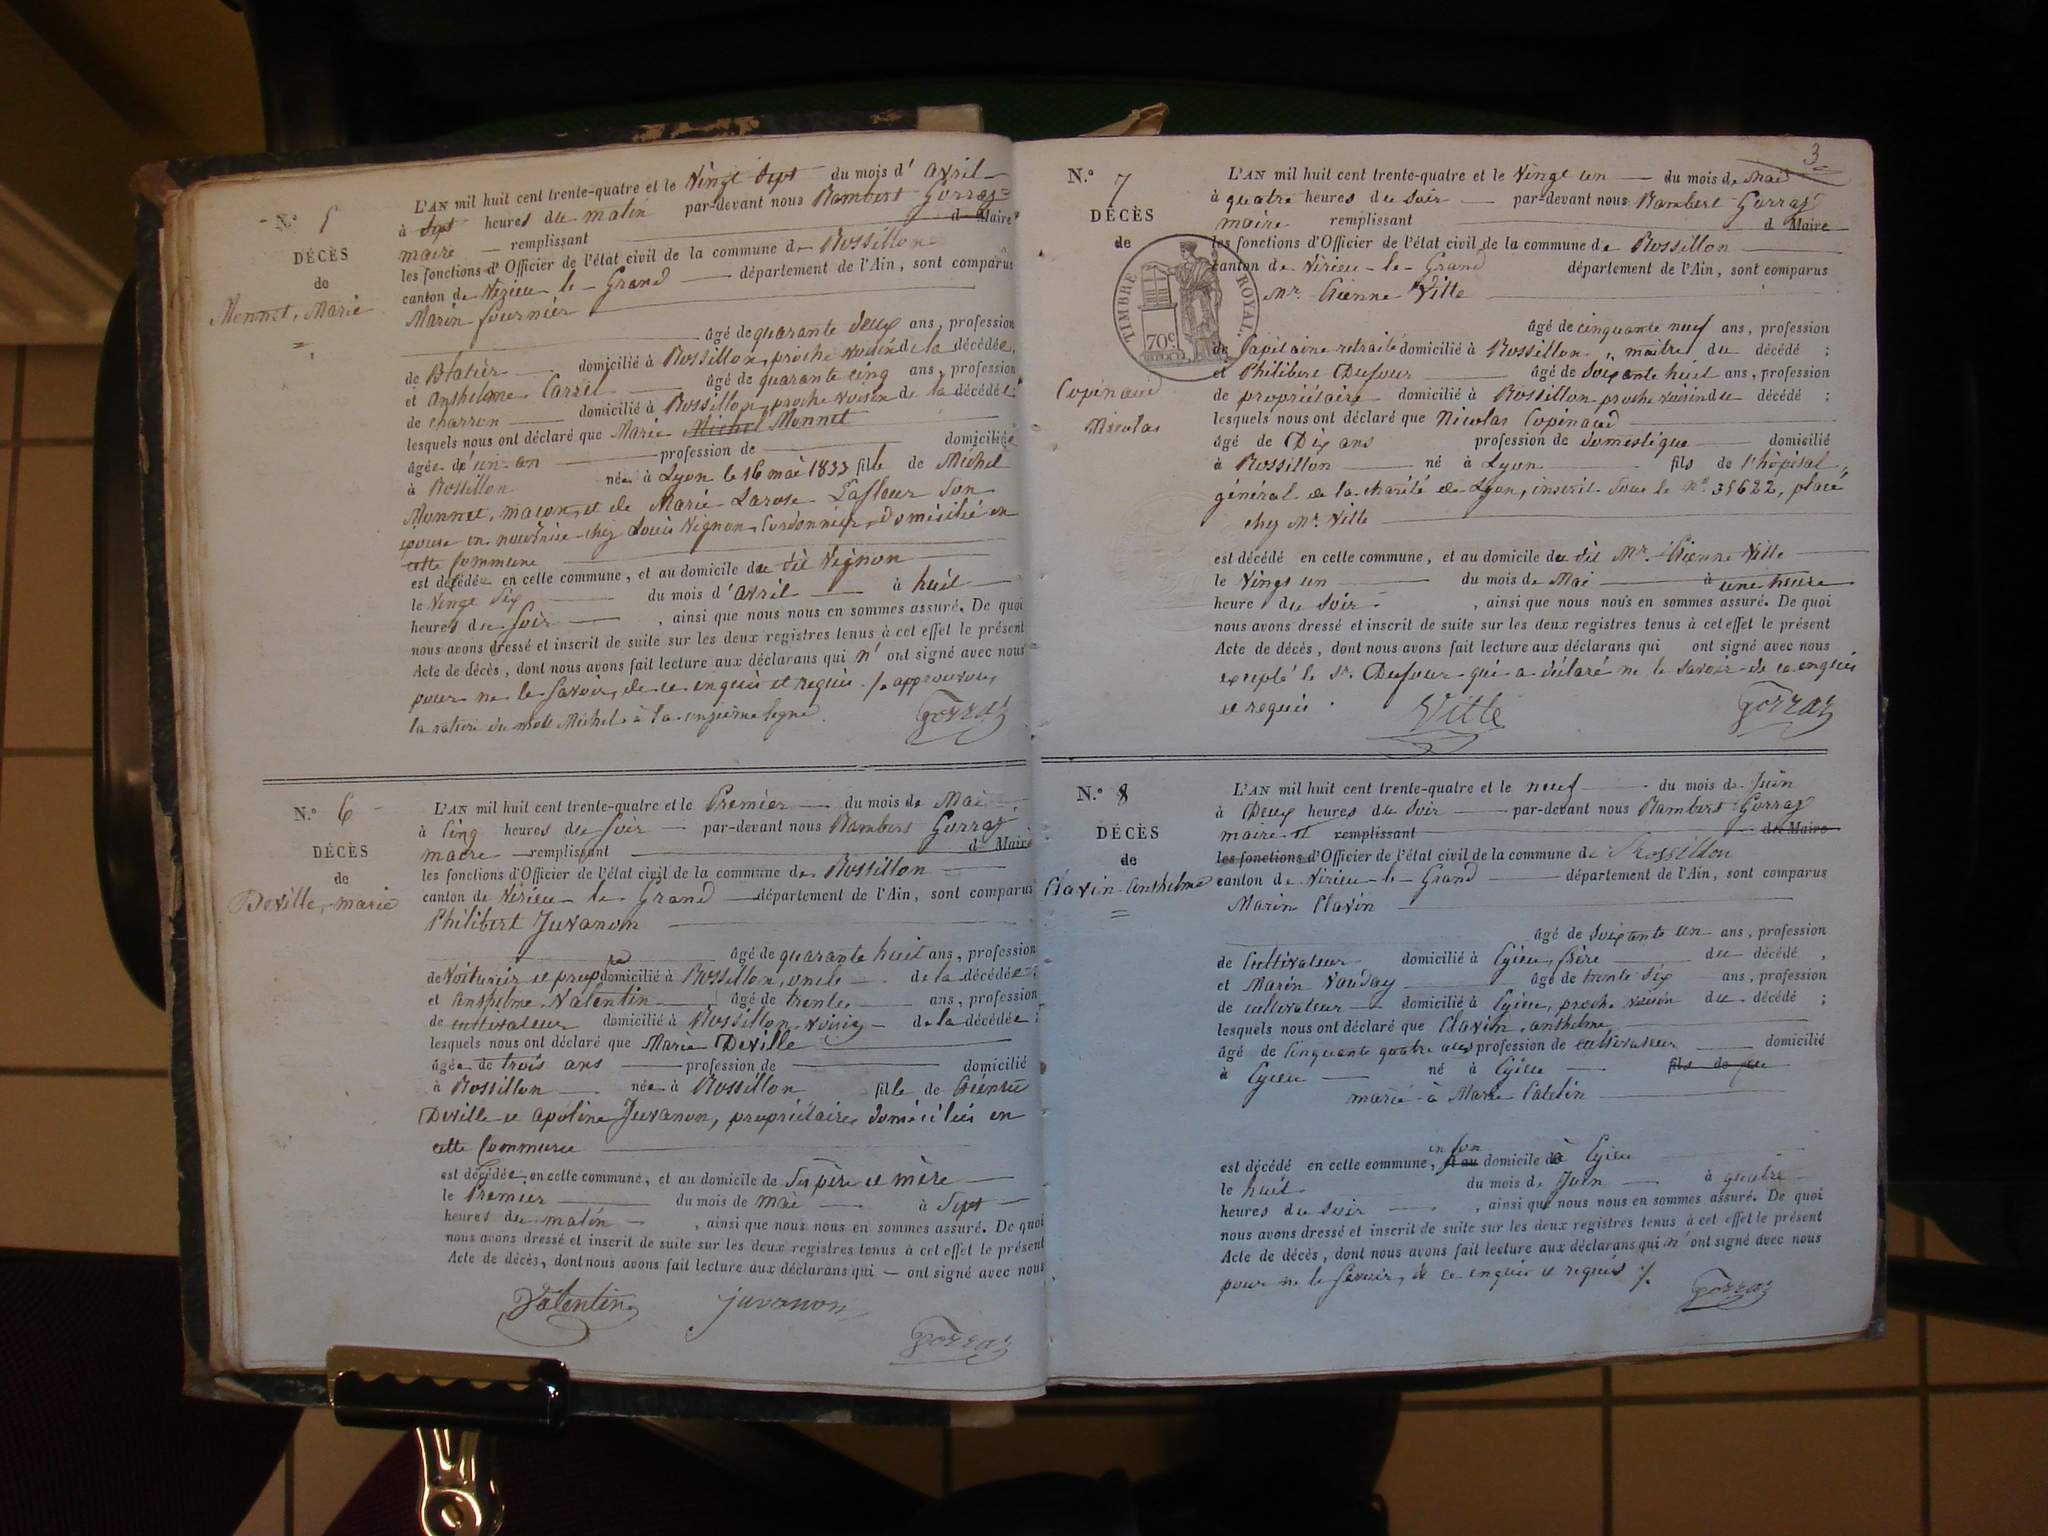 N.º 5
DÉCÈS
de
Monnet, Marie
L'AN mil huit cent trente-quatre et le Vingt Sept du mois d'avril
à Sept heures du matin par-devant nous Rambert Gorraz
maire remplissant d Maire
les fonctions d'Officier de l'état civil de la commune de Rossillon
canton de Virieu-le-Grand département de l'Ain, sont comparus
Marin fournier
âgé de quarante deux ans, profession
de domicilié à Rossillon, proche voisin de la décédée,
et anthelme Carrel âgé de quarante cinq ans, profession
de charron domicilié à Rossillon, proche voisin de la décédée
lesquels nous ont déclaré que Marie Michel Monnet
âgée d'un an profession de domiciliée
à Rossillon née à Lyon le 16 mai 1833 fille de Michel
Monnet, maçon, et de Marie Larose Lafleur son
épouse en nourrice chez Louis Vignon, Cordonnier, domicilié en
cette Commune
est décédée en cette commune, et au domicile du dit Vignon
le Vingt Six du mois d'avril à huit
heures du Soir , ainsi que nous nous en sommes assuré. De quoi
nous avons dressé et inscrit de suite sur les deux registres tenus à cet effet le présent
Acte de décès, dont nous avons fait lecture aux déclarans qui n'ont signé avec nous
pour ne le Savoir, de ce enquis et requis ./. approuvons
la rature du mot Michel à la onzième ligne.
Gorraz
N.º 6
DÉCÈS
de
Deville, marie
L'AN mil huit cent trente-quatre et le Premier du mois de Mai
à Cinq heures du Soir par-devant nous Rambert Gorraz
maire remplissant d Maire
les fonctions d'Officier de l'état civil de la commune de Rossillon
canton de Virieu-le-Grand département de l'Ain, sont comparus
Philibert Juvanon
âgé de quarante huit ans, profession
de Voiturier et prop.re domicilié à Rossillon, oncle de la décédée;
et anthelme Valentin âgé de trente ans, profession
de cultivateur domicilié à Rossillon voisin de la décédée;
lesquels nous ont déclaré que Marie Deville
âgée de trois ans profession de domicilié
à Rossillon née à Rossillon fille de Etienne
Deville et apoline Juvanon, propriétaires domiciliés en
cette Commune
est décédée en cette commune, et au domicile de Ses père et mère
le Premier du mois de mai à Sept
heures du matin , ainsi que nous nous en sommes assuré. De quoi
nous avons dressé et inscrit de suite sur les deux registres tenus à cet effet le présent
Acte de décès, dont nous avons fait lecture aux déclarans qui — ont signé avec nous
Valentin juvanon
Gorraz
3
N.º 7
DÉCÈS
de
TIMBRE ROYAL.
70c
Copinaud
Nicolas
L'AN mil huit cent trente-quatre et le Vingt un du mois de Mai
à quatre heures du Soir par-devant nous Rambert Gorraz
maire remplissant d Maire
les fonctions d'Officier de l'état civil de la commune de Rossillon
canton de Virieu-le-Grand département de l'Ain, sont comparus
Mr. Etienne Ville
âgé de cinquante neuf ans, profession
de Capitaine retraité domicilié à Rossillon, maître du décédé;
et Philibert Dufour âgé de Soixante huit ans, profession
de propriétaire domicilié à Rossillon proche voisin du décédé;
lesquels nous ont déclaré que Nicolas Copinaud
âgé de Dix ans profession de domestique domicilié
à Rossillon né à Lyon fils de l'hôpital
général de la charité de Lyon, inscrit Sous le n.º 35622, placé
chez Mr. Ville
est décédé en cette commune, et au domicile du dit Mr. Etienne Ville
le Vingt un du mois de Mai à une heure
heure du Soir , ainsi que nous nous en sommes assuré. De quoi
nous avons dressé et inscrit de suite sur les deux registres tenus à cet effet le présent
Acte de décès, dont nous avons fait lecture aux déclarans qui ont signé avec nous
excepté le Sr. Dufour qui a déclaré ne le Savoir de ce enquis
et requis.
Ville Gorraz
N.º 8
DÉCÈS
de
Clavin anthelme
L'AN mil huit cent trente-quatre et le neuf du mois de Juin
à Deux heures du Soir par-devant nous Rambert Gorraz
maire et remplissant de Maire
les fonctions d'Officier de l'état civil de la commune de Rossillon
canton de Virieu-le-Grand département de l'Ain, sont comparus
Marin Clavin
âgé de Soixante un ans, profession
de Cultivateur domicilié à Egieu, frère du décédé,
et Marin Vauday âgé de trente Six ans, profession
de cultivateur domicilié à Egieu, proche voisin du décédé;
lesquels nous ont déclaré que Clavin, anthelme
âgé de Cinquante quatre ans profession de cultivateur domicilié
à Egieu né à Egieu fils de
marié à Marie
est décédé en cette commune, en Son et au domicile à Egieu
le huit du mois de Juin à quatre
heures du Soir , ainsi que nous nous en sommes assuré. De quoi
nous avons dressé et inscrit de suite sur les deux registres tenus à cet effet le présent
Acte de décès, dont nous avons fait lecture aux déclarans qui n'ont signé avec nous
pour ne le Savoir, de ce enquis et requis ./.
Gorraz